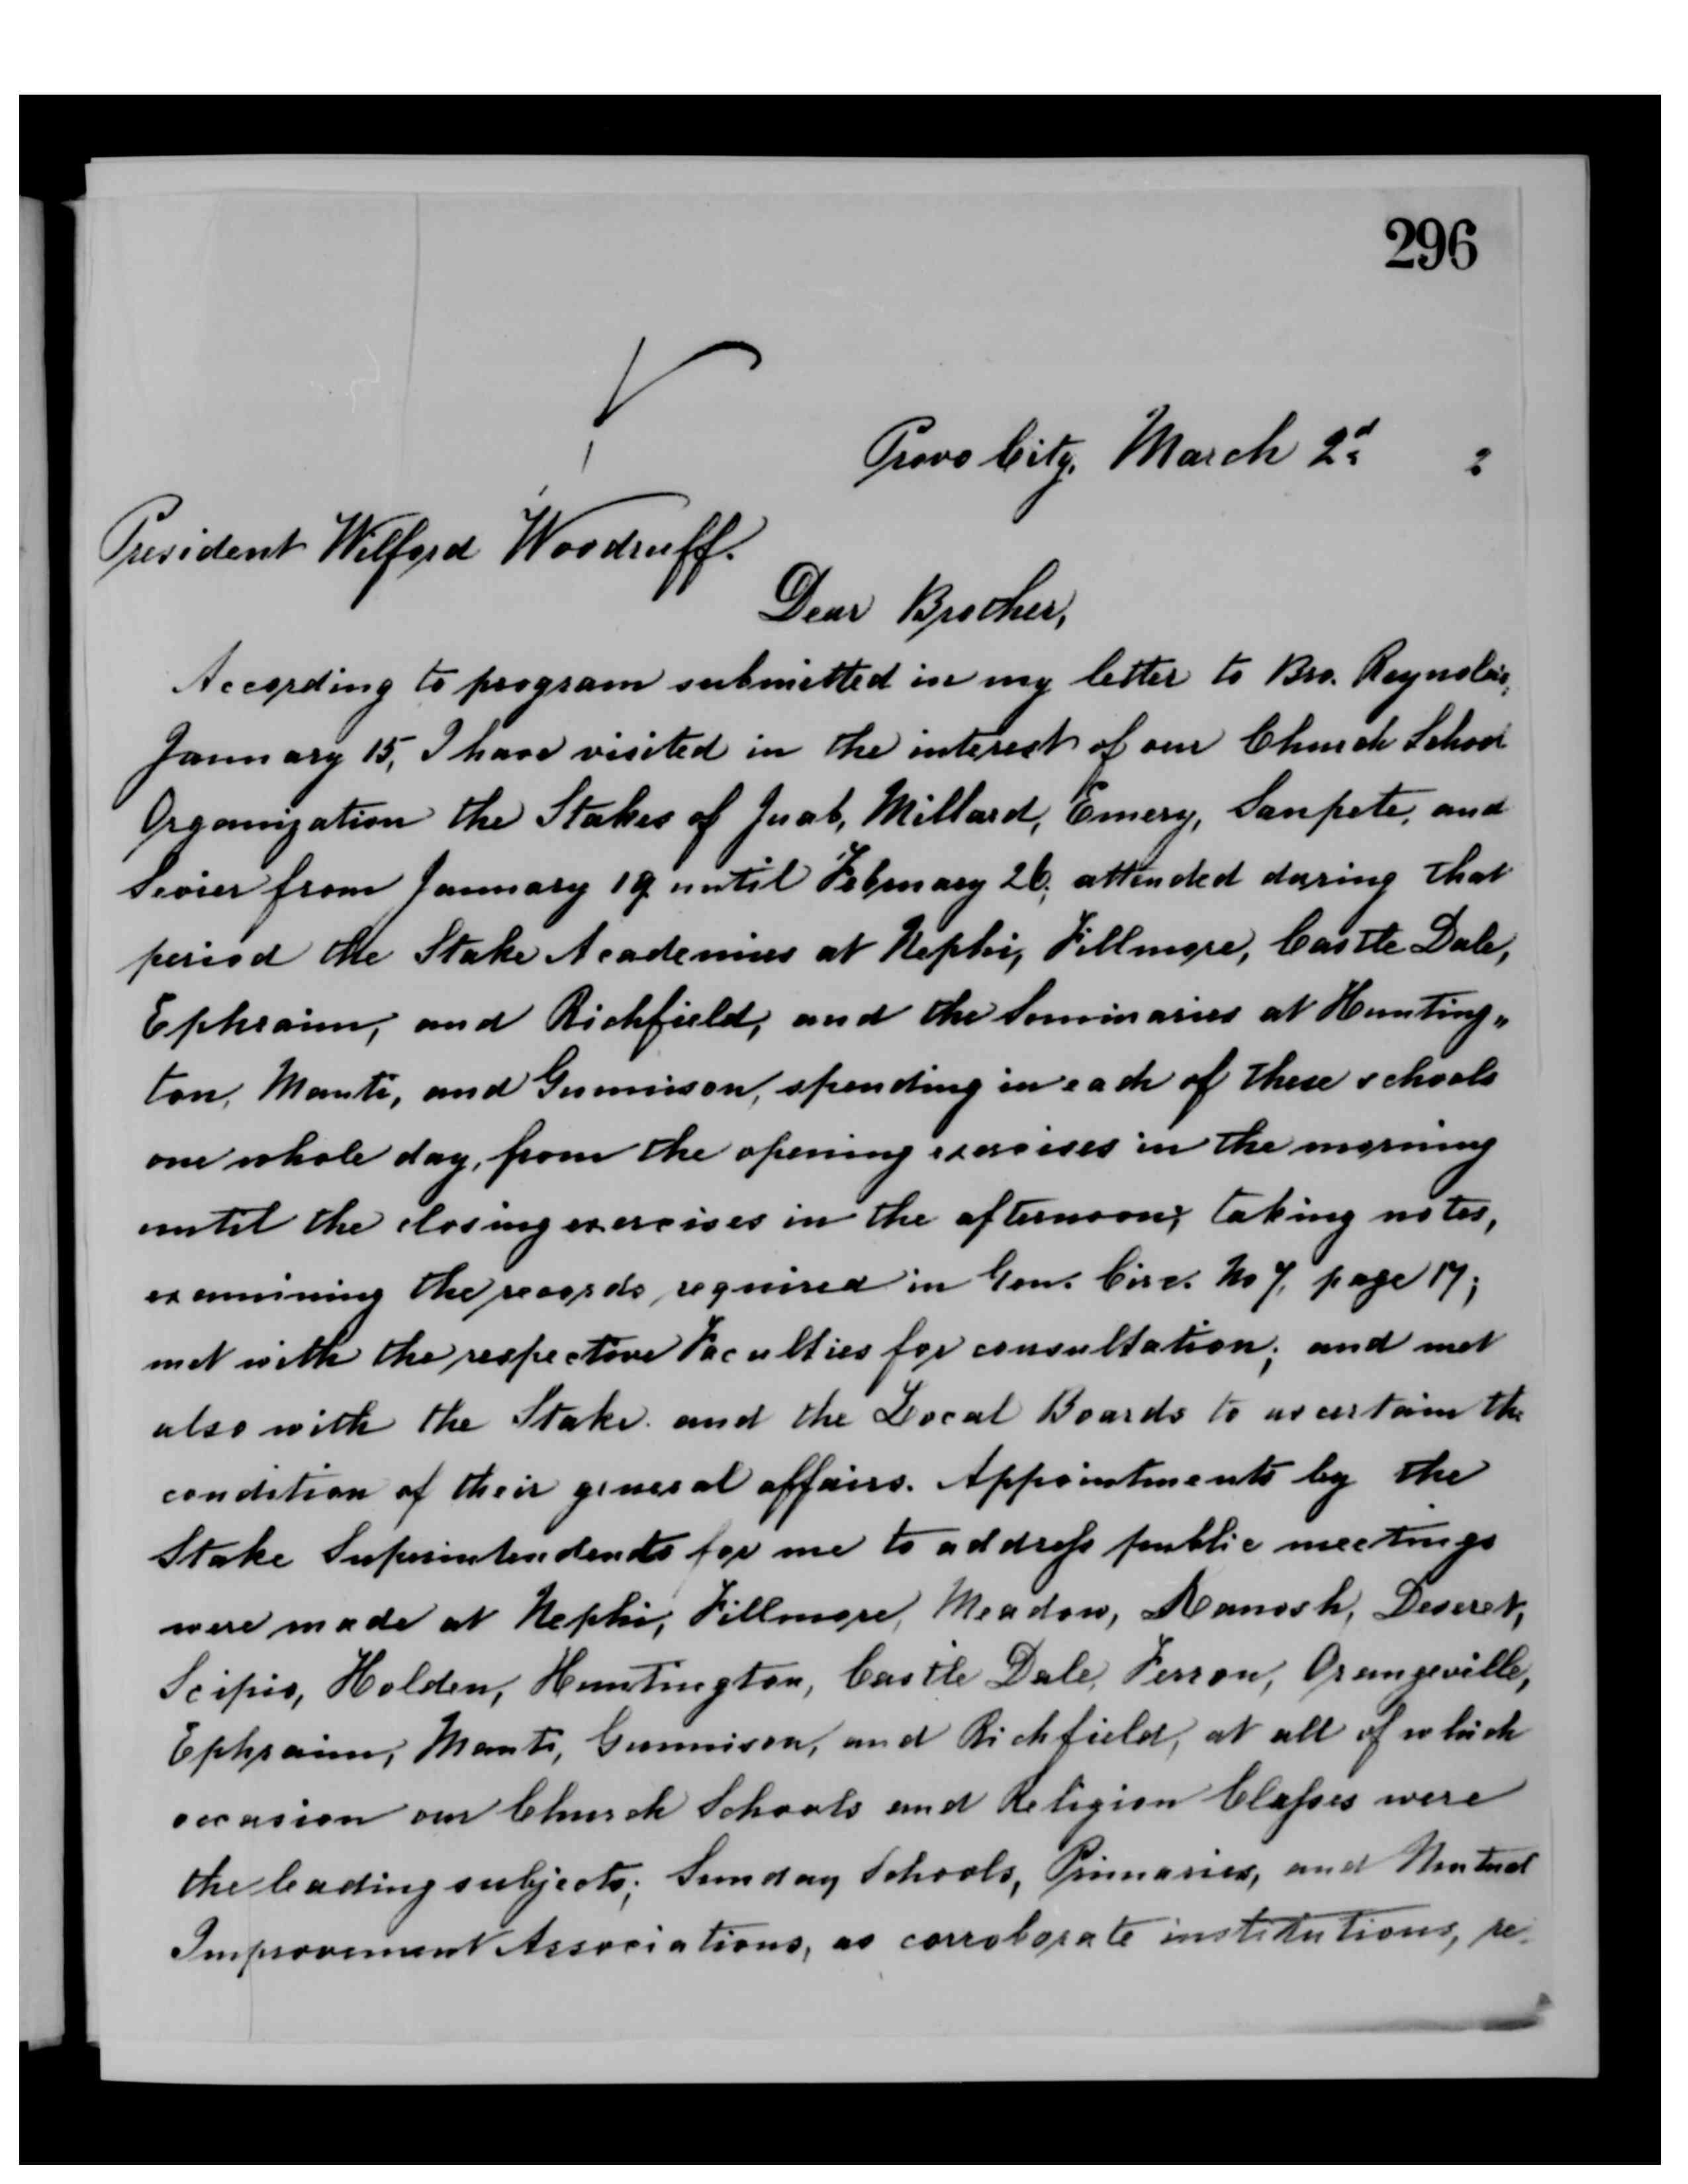 296
Provo City, March 2d 2
President Wilford Woodruff.
Dear Brother,
According to program submitted in my letter to Bro. Reynolds,
January 15, I have visited in the interest of our Church School
Organization the Stakes of Juab, Millard, Emery, Sanpete, and
Sevier from January 19 until February 26, attended during that
period the Stake Academies at Nephi, Fillmore, Castle Dale,
Ephraim, and Richfield, and the Seminaries at Hunting„
ton, Manti, and Gunnison, spending in each of these schools
one whole day, from the opening exercises in the morning
until the closing exercises in the afternoon; taking notes,
examining the records required in Gen. Circ. No 7, page 17;
met with the respective Faculties for consultation; and met
also with the Stake and the Local Boards to ascertain the
condition of their general affairs. Appointments by the
Stake Superintendents for me to address public meetings
were made at Nephi, Fillmore, Meadow, Kanosh, Deseret,
Scipio, Holden, Huntington, Castle Dale, Ferron, Orangeville,
Ephraim, Manti, Gunnison, and Richfield, at all of which
occasion our Church Schools and Religion Classes were
the leading subjects; Sunday Schools, Primaries, and Mutual
Improvement Associations, as corroborate institutions, re-